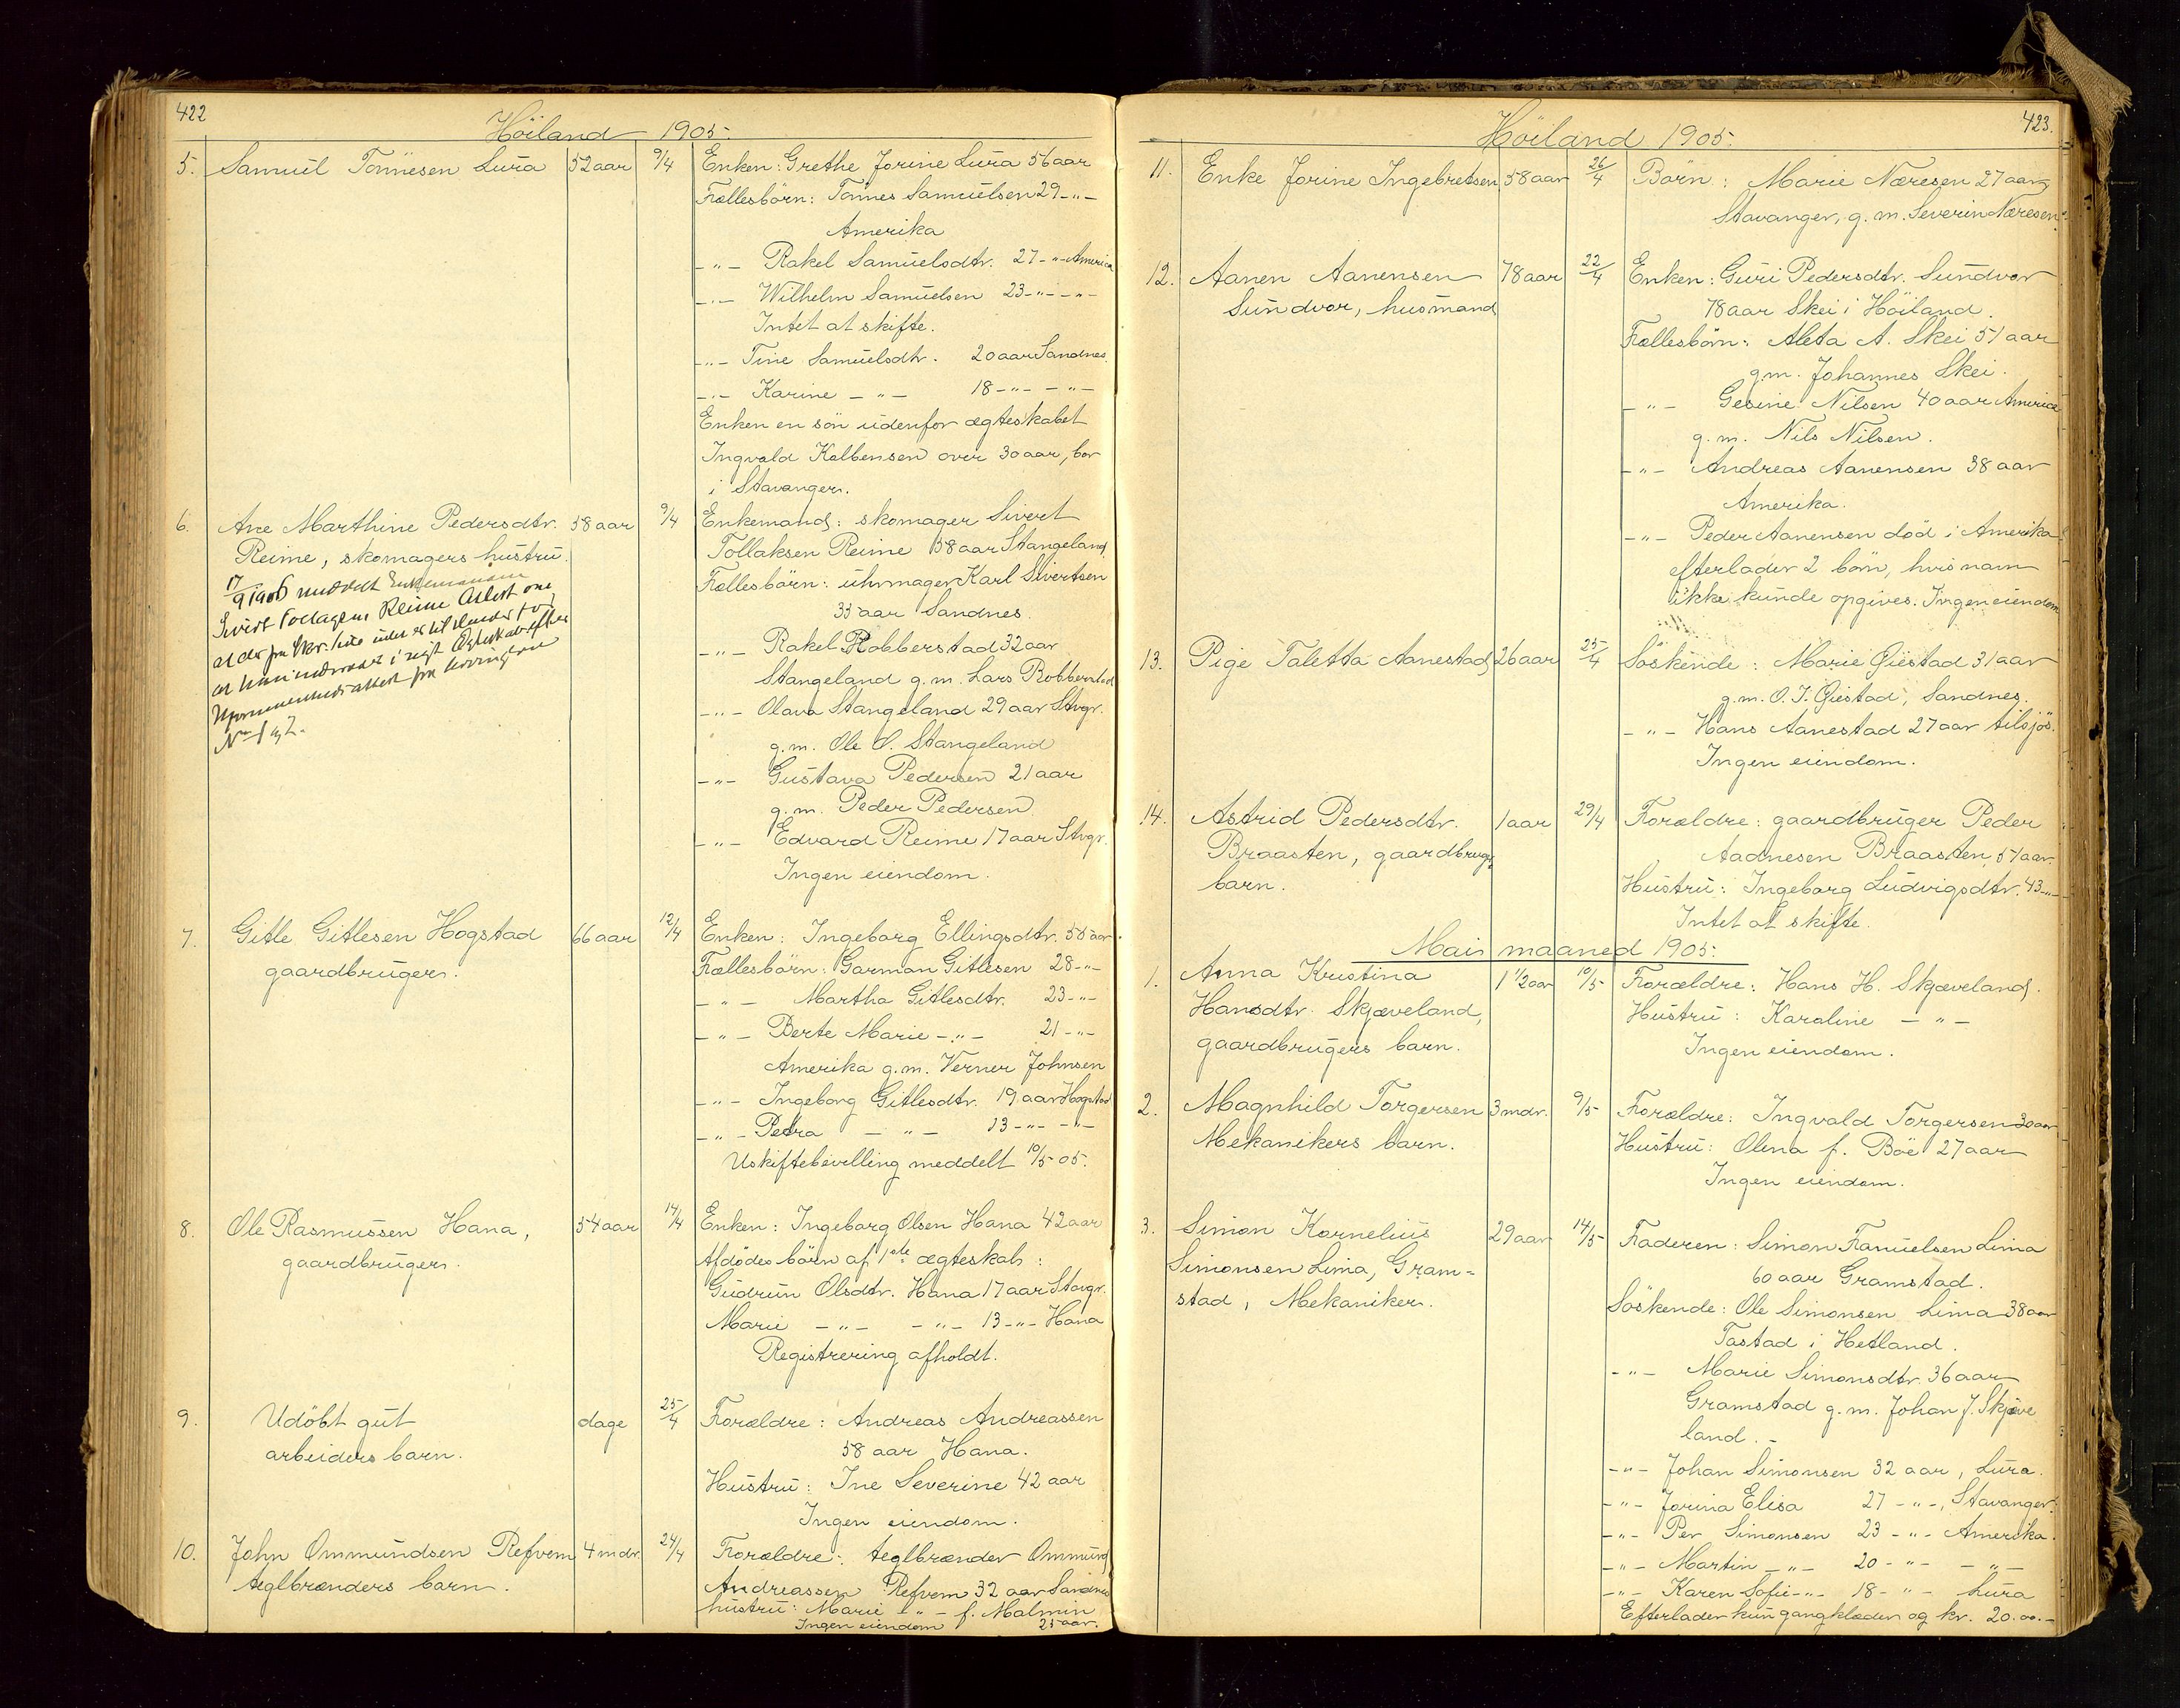 422
Höiland 1905.
5. Samuel Tönnesen Lura 52 aar 9/4 Enken: Grethe Jorine Lura 56 aar
Fællesbörn: Tönnes Samuelsen 29 -"-
Amerika
-"- Rakel Samuelsdtr. 27 -"- America
-"- Wilhelm Samuelsen 23 -"- -"-
Intet at skifte.
-"- Tine Samuelsdtr. 20 aar Sandnes.
-"- Karine -"- 18 -"- -"-
Enken en sön udenfor ægteskabet
Ingvald Kolbensen over 30 aar, bor
i Stavanger.
6. Ane Marthine Pedersdtr. 58 aar 9/4 Enkemand: skomager Sivert
Reime, skomagers hustru. Tollaksen Reime 58 aar Stangeland.
17/9 1906 meddelt Enkemanden
Sivert Reime Attest om
at der fra Skr.
at han i
fra
No
Fællesbörn: uhrmager Karl Sivertsen
35 aar Sandnes.
-"- Rakel Robberstad 32 aar
Stangeland g.m. Lars Robberstad
-"- Olava Stangeland 29 aar Stvgr.
g.m. Ole O. Stangeland
-"- Gustava Pedersen 21 aar
g.m. Peder Pedersen
-"- Edvard Reime 17 aar Stvgr.
Ingen eiendom.
7. Gitle Gitlesen Hogstad 66 aar 12/4 Enken: Ingeborg Ellingsdtr. 58 aar.
gaardbruger. Fællesbörn: Garman Gitlesen 28 -"-
-"- Martha Gitlesdtr. 23 -"-
-"- Berte Marie -"- 21 -"-
Amerika g.m. Verner Johnsen
-"- Ingeborg Gitlesdtr. 19 aar Hogstad
-"- Pedra -"- 13 -"- -"-
Uskiftebevilling meddelt 10/5 05.
8. Ole Rasmussen Hana, 54 aar 14/4 Enken: Ingeborg Olsen Hana 42 aar
gaardbruger. Afdödes börn af 1ste ægteskab:
Gudrun Olsdtr. Hana 17 aar Stvgr.
Marie -"- -"- 13 -"- Hana
Registrering afholdt.
9. Udöbt gut dage 25/4 Forældre: Andreas Andreassen
arbeiders barn. 58 aar Hana.
Hustru: Ine Severine 42 aar
Ingen eiendom.
10. John Ommundsen Refvem 4 mdr. 24/4 Forældre: teglbrænder Ommund
teglbrænders barn. Andreassen Refvem 32 aar Sandnes
hustru: Marie -"- f. Malmin
Ingen eiendom 25 aar.
423.
Höiland 1905.
11. Enke Jorine Ingebretsen 58 aar 26/4 Börn: Marie Næresen 27 aar,
Stavanger, g.m. Severin Næresen.
12. Aanen Aanensen 78 aar 22/4 Enken: Guri Pedersdtr. Sundvor
Sundvor, husmand 78 aar Skei i Höiland.
Fællesbörn: Aleta A. Skei 51 aar
g.m. Johannes Skei.
-"- Gesine Nilsen 40 aar America
g.m. Nils Nilsen.
-"- Andreas Aanensen 38 aar
Amerika.
-"- Peder Aanensen död i Amerika
efterlader 2 börn, hvis navn
ikke kunde opgives. Ingen eiendom
13. Pige Taletta Aanestad 26 aar 25/4 Söskende: Marie Giestad 31 aar
g.m. O. T. Giestad, Sandnes.
-"- Hans Aanestad 27 aar tilsjös.
Ingen eiendom.
14. Astrid Pedersdtr. 1 aar 29/4 Forældre: gaardbruger Peder
Braasten, gaardbrugs Aadnesen Braasten 51 aar.
barn. Hustru: Ingeborg Ludvigsdtr. 43 -"-
Intet at skifte.
Mai maaned 1905.
1. Anna Kristina 1 1/2 aar 10/5 Forældre: Hans H. Skjæveland.
Hansdtr. Skjæveland, Hustru: Karoline -"-
gaardbrugers barn. Ingen eiendom.
2. Magnhild Torgersen 3 mdr. 9/5 Forældre: Ingvald Torgersen 30 aar
Mekanikers barn. Hustru: Olena f. Böe 27 aar
Ingen eiendom.
3. Simon Kornelius 29 aar 14/5 Faderen: Simon Fanuelsen Lima
Simonsen Lima, Gram= 60 aar Gramstad.
stad, Mekaniker. Söskende: Ole Simonsen Lima 38 aar
Tastad i Hetland.
-"- Marie Simonsdtr. 36 aar
Gramstad g.m. Johan J. Skjæve
land.
-"- Johan Simonsen 32 aar, Lura.
-"- Jorina Elisa 27 -"-, Stavanger.
-"- Per Simonsen 23 -"- Amerika.
-"- Martin -"- 20 -"- -"-
-"- Karen Sofie -"- 18 -"- Lura
Efterlader kun gangklæder og kr. 20.00.-